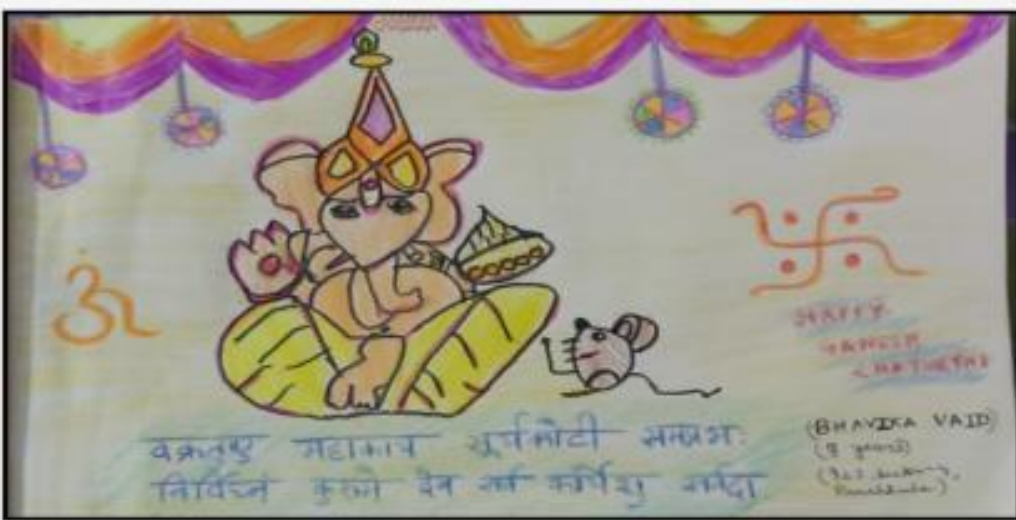 ॐ
HAPPY
GANESH
CHATURTHI
वक्रतुण्ड महाकाय सूर्यकोटी समप्रभः
निर्विघ्नं कुरुमे देव सर्व कार्येशु सर्वदा
(BHAVIKA VAID)
(8 years)
Panchkula)